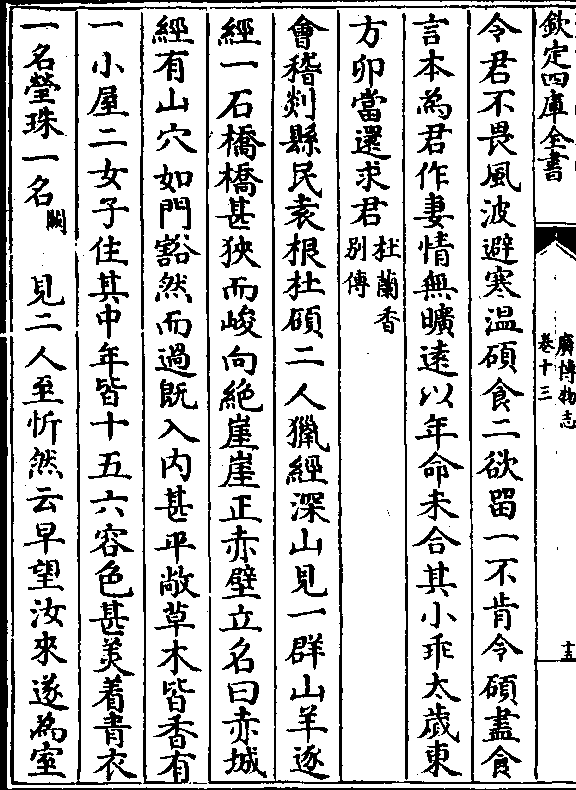 欽定四庫全書
廣博物志
卷十三
十五
令君不畏風波避寒温碩食二欲畱一不肯令碩盡食
言本為君作妻情無曠逺以年命未合其小乖太歲東
方卯當還求君杜蘭香
别傳
會稽剡縣民袁根杜碩二人獵經深山見一群山羊逐
經一石橋橋甚狹而峻向絶崖崖正赤壁立名曰赤城
經有山穴如門豁然而過既入内甚平敞草木皆香有
一小屋二女子住其中年皆十五六容色甚美着青衣
一名瑩珠一名闕 見二人至忻然云早望汝來遂為室